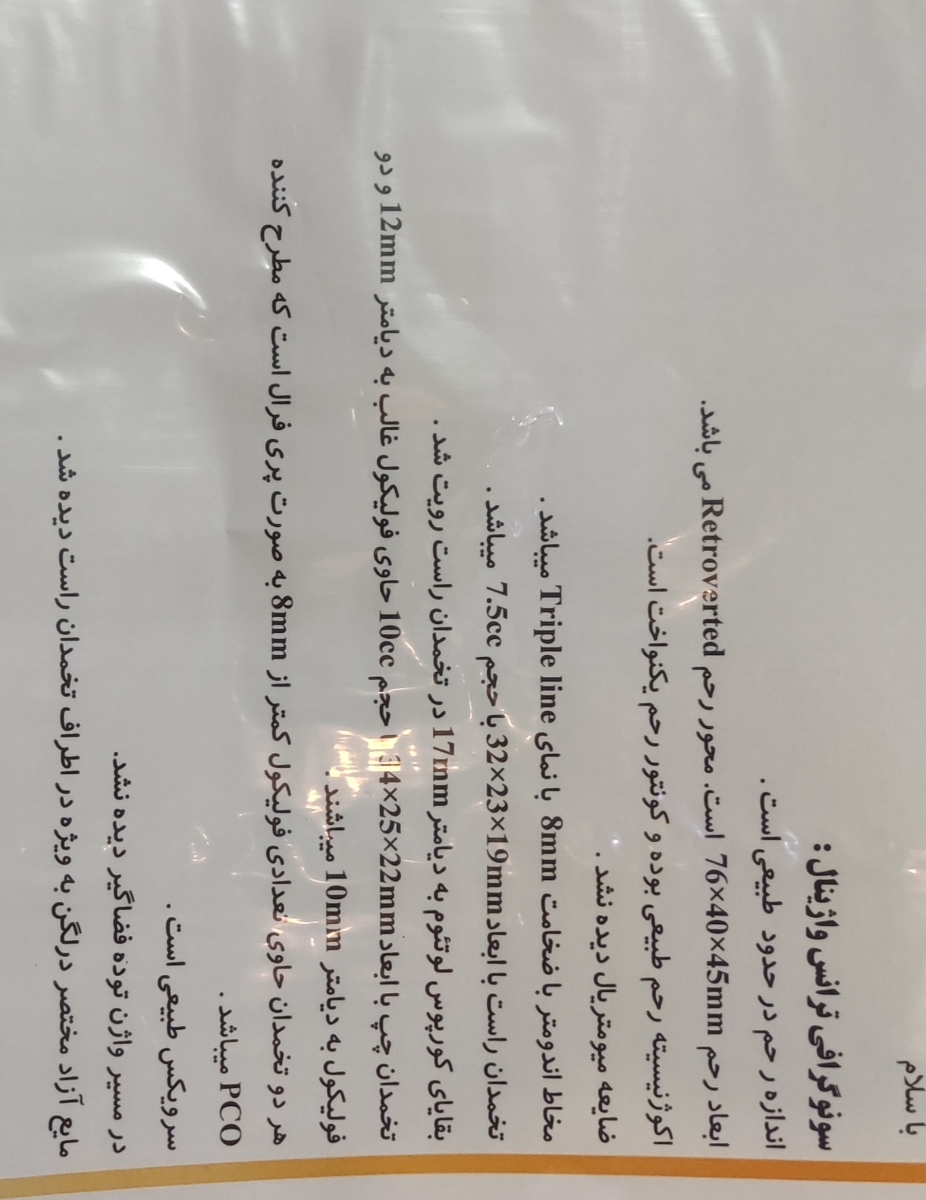 با سلام
سونوگرافی ترانس واژینال :
اندازه رحم در حدود طبیعی است .
ابعاد رحم 76×40×45mm است. محور رحم Retroverted می باشد.
اکوژنیسیته رحم طبیعی بوده و کونتور رحم یکنواخت است.
ضایعه میومتریال دیده نشد .
مخاط اندومتر با ضخامت 8mm با نمای Triple line میباشد .
تخمدان راست با ابعاد 32×23×19mm با حجم 7.5cc میباشد .
بقایای کورپوس لوتئوم به دیامتر 17mm در تخمدان راست رویت شد .
تخمدان چپ با ابعاد 34×25×22mm با حجم 10cc حاوی فولیکول غالب به دیامتر 12mm و دو
فولیکول به دیامتر 10mm میباشند .
هر دو تخمدان حاوی تعدادی فولیکول کمتر از 8mm به صورت پری فرال است که مطرح کننده
PCO میباشد .
سرویکس طبیعی است .
در مسیر واژن توده فضاگیر دیده نشد.
مایع آزاد مختصر درلگن به ویژه در اطراف تخمدان راست دیده شد .